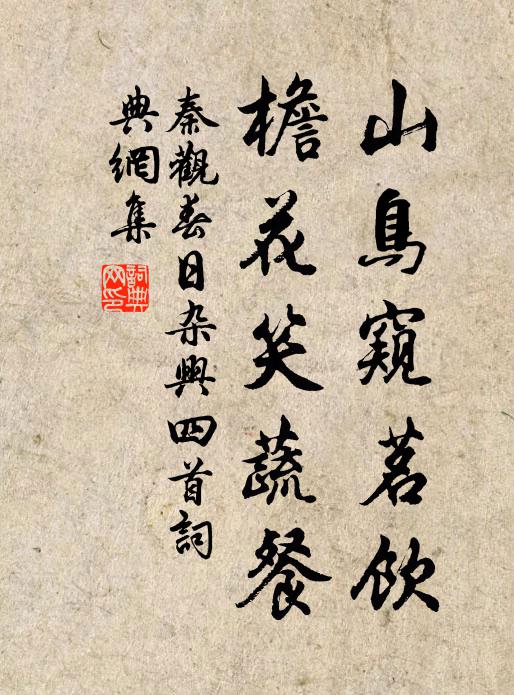 山鳥窺茗飲
檐花笑蔬餐
秦觀春日杂興四首詞
典網集
詞典
网印